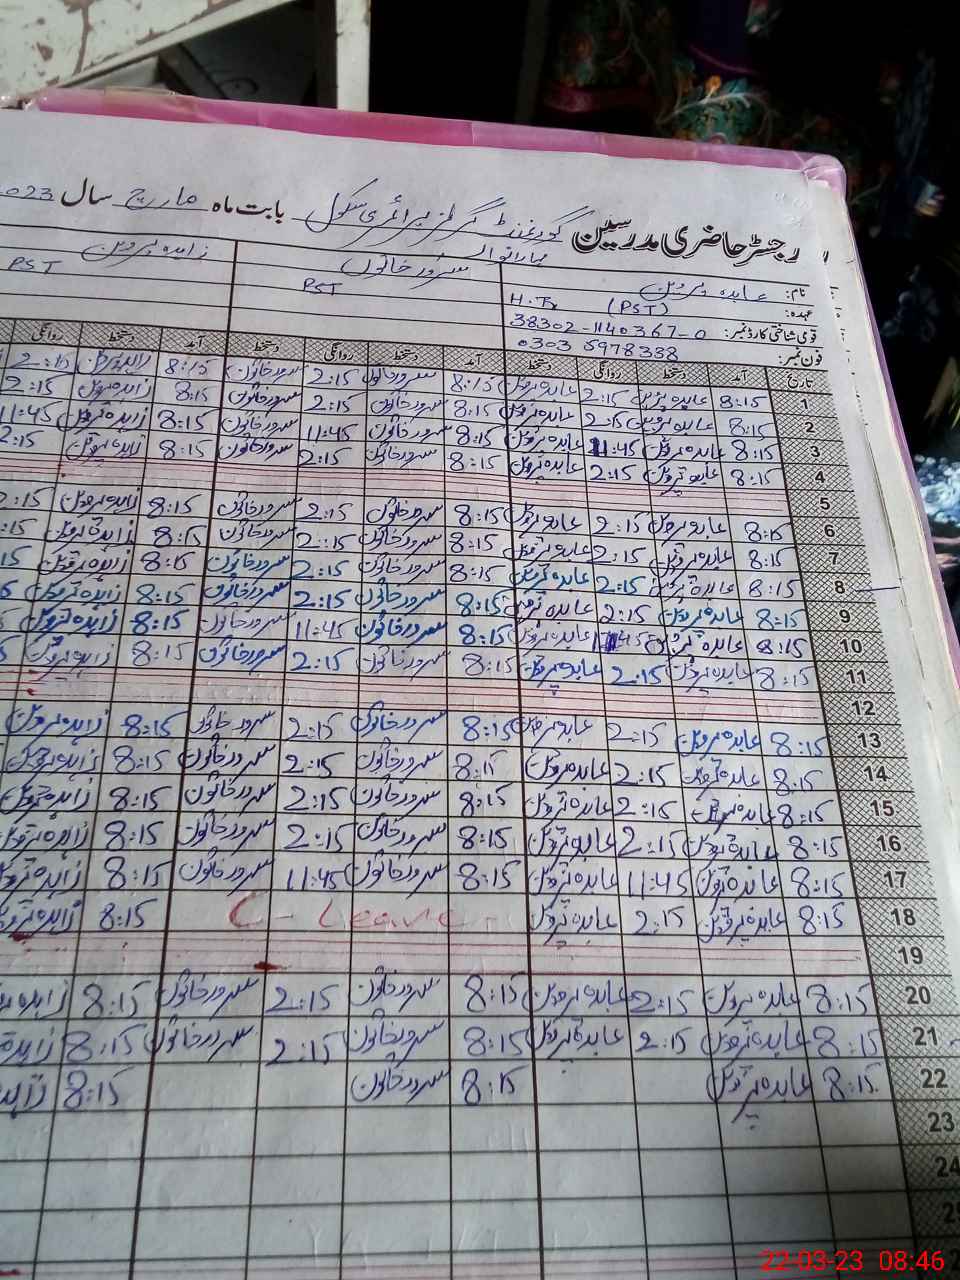 رجسٹر حاضری مدرسین گورنمنٹ گرلز پرائمری سکول بابت ماہ مارچ سال 2023
نام: عابدہ پروین سرور خاتون زاہدہ پروین
عہدہ: H.Tr (PST) PST PST
قومی شناختی کارڈ نمبر: 38302-1140367-0
فون نمبر: 0303 5978338
تاریخ آمد دستخط روانگی دستخط آمد دستخط روانگی دستخط آمد دستخط روانگی
1 8:15 عابدہ پروین 2:15 عابدہ پروین 8:15 سرور خاتون 2:15 سرور خاتون 8:15 زاہدہ پروین 2:15
2 8:15 عابدہ پروین 2:15 عابدہ پروین 8:15 سرور خاتون 2:15 سرور خاتون 8:15 زاہدہ پروین 2:15
3 8:15 عابدہ پروین 11:45 عابدہ پروین 8:15 سرور خاتون 11:45 سرور خاتون 8:15 زاہدہ پروین 11:45
4 8:15 عابدہ پروین 2:15 عابدہ پروین 8:15 سرور خاتون 2:15 سرور خاتون 8:15 زاہدہ پروین 2:15
5
6 8:15 عابدہ پروین 2:15 عابدہ پروین 8:15 سرور خاتون 2:15 سرور خاتون 8:15 زاہدہ پروین 2:15
7 8:15 عابدہ پروین 2:15 عابدہ پروین 8:15 سرور خاتون 2:15 سرور خاتون 8:15 زاہدہ پروین :15
8 8:15 عابدہ پروین 2:15 عابدہ پروین 8:15 سرور خاتون 2:15 سرور خاتون 8:15 زاہدہ پروین 15
9 8:15 عابدہ پروین 2:15 عابدہ پروین 8:15 سرور خاتون 2:15 سرور خاتون 8:15 زاہدہ پروین 5
10 8:15 عابدہ پروین 11:45 عابدہ پروین 8:15 سرور خاتون 11:45 سرور خاتون 8:15 زاہدہ پروین 5
11 8:15 عابدہ پروین 2:15 عابدہ پروین 8:15 سرور خاتون 2:15 سرور خاتون 8:15 زاہدہ پروین 5
12
13 8:15 عابدہ پروین 2:15 عابدہ پروین 8:15 سرور خاتون 2:15 سرور خاتون 8:15 زاہدہ پروین
14 8:15 عابدہ پروین 2:15 عابدہ پروین 8:15 سرور خاتون 2:15 سرور خاتون 8:15 زاہدہ پروین
15 8:15 عابدہ پروین 2:15 عابدہ پروین 8:15 سرور خاتون 2:15 سرور خاتون 8:15 زاہدہ پروین
16 8:15 عابدہ پروین 2:15 عابدہ پروین 8:15 سرور خاتون 2:15 سرور خاتون 8:15 زاہدہ پروین
17 8:15 عابدہ پروین 11:45 عابدہ پروین 8:15 سرور خاتون 11:45 سرور خاتون 8:15 زاہدہ پروین
18 8:15 عابدہ پروین 2:15 عابدہ پروین C - Leave 8:15 زاہدہ پروین
19
20 8:15 عابدہ پروین 2:15 عابدہ پروین 8:15 سرور خاتون 2:15 سرور خاتون 8:15 زاہدہ
21 8:15 عابدہ پروین 2:15 عابدہ پروین 8:15 سرور خاتون 2:15 سرور خاتون 8:15 زاہدہ
22 8:15 عابدہ پروین 8:15 سرور خاتون 8:15 زاہدہ
23
24
22-03-23 08:46